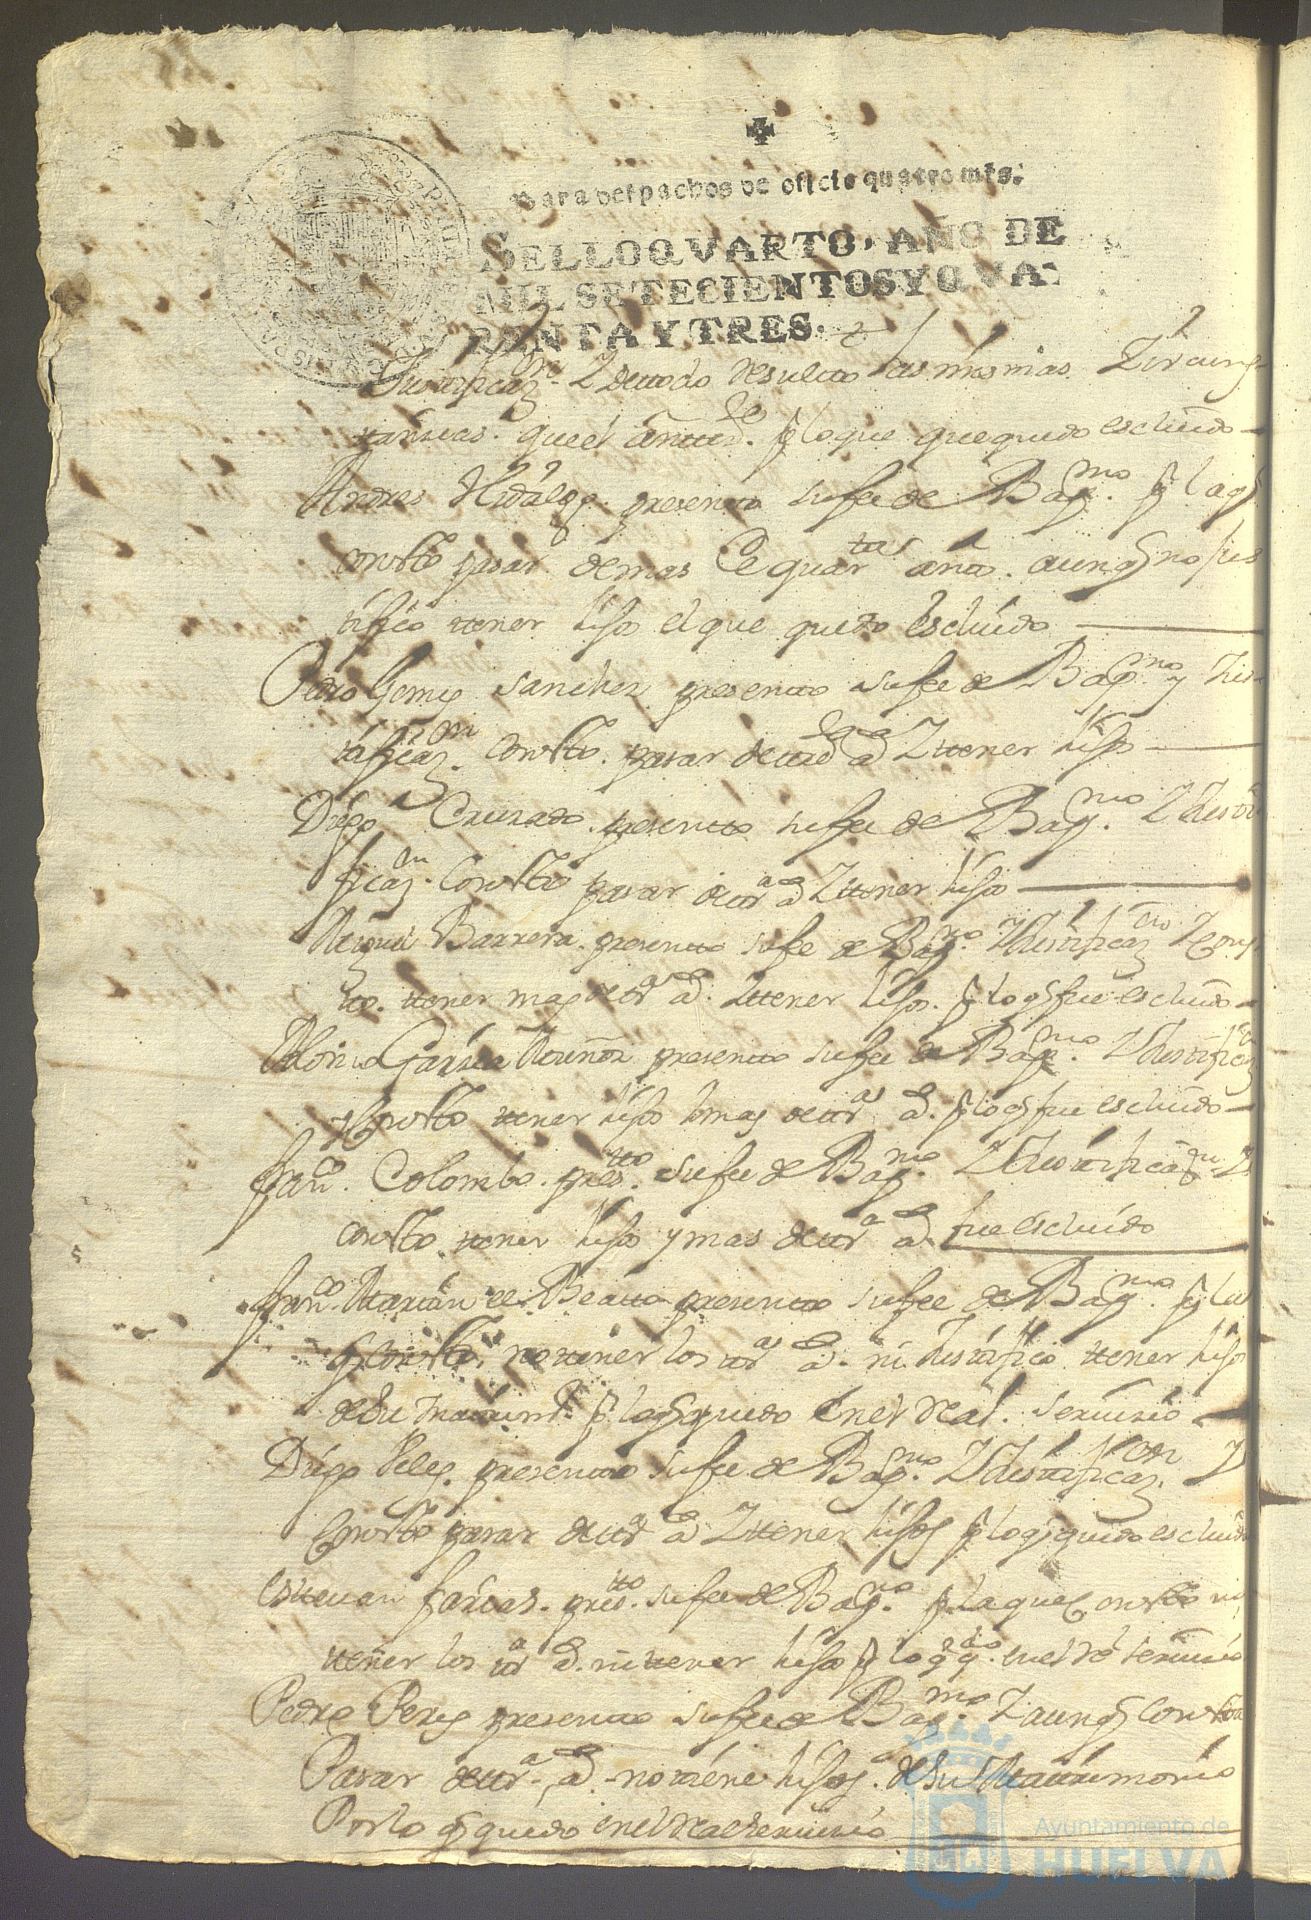 Para despachos de oficio quatro mrs.
SELLO QVARTO, AÑO DE
MIL SETECIENTOS Y QVA-
RENTA Y TRES.
Justificazn. Y de todo resulto las mismas Zircuns-
tanzias. que el antted.te p lo que quedo escluido
Andres Hidalgo presento su fee de Bapmo. p la q
consto pasar de mas de quartas años. aunq no jus
tifico tener hijos el que quedo Escluido
Pedro Gomez Sanchez presento su fee de Bapmo. y Jus-
tificazn. consto. pasar de ad Y ttener hijos
Diego Cruzado presento su fee de Bapmo. Y Justi
ficazn. Consto pasar de ad Y ttener hijos
Miguel Barrera presento su fee de Bapmo. Y Justificazn Y Cons
to. ttener mas de ad. Y ttener hijos. p lo q fue escluido
Alonso Garzia Muñoz presento su fee de Bapmo. Y Justificaz
Consto ttener hijos mas de ad. p lo q fue escluido
Franco. Colombo. pres.tto su fee de Bapmo. Y Justificazn. Y
consto ttener hijos y mas de ad. fue Escluido
Franco. Martin de Beatto presento su fee de Bapmo. p la
q consto no ttener los ad. ni Justifico ttener hijos
de su p lo q quedo En el Real. servizio
Diego Velez. presento su fee de Bapmo. Y Justificazn. Y
Consto pasar de ad Y ttener hijos p lo q quedo escluido
Esttevan farias. pres.tto su fee de Bapmo. p la que Consto no
ttener los ad. ni ttener hijos p lo q q.do en el Rl servizio
Pedro Perez presento su fee de Bapmo. Y aunq Consto
Pasar de ad no ttiene hijos de su Mattrimonio
Por lo q quedo en el Real servizio
Ayuntamiento de
HUELVA